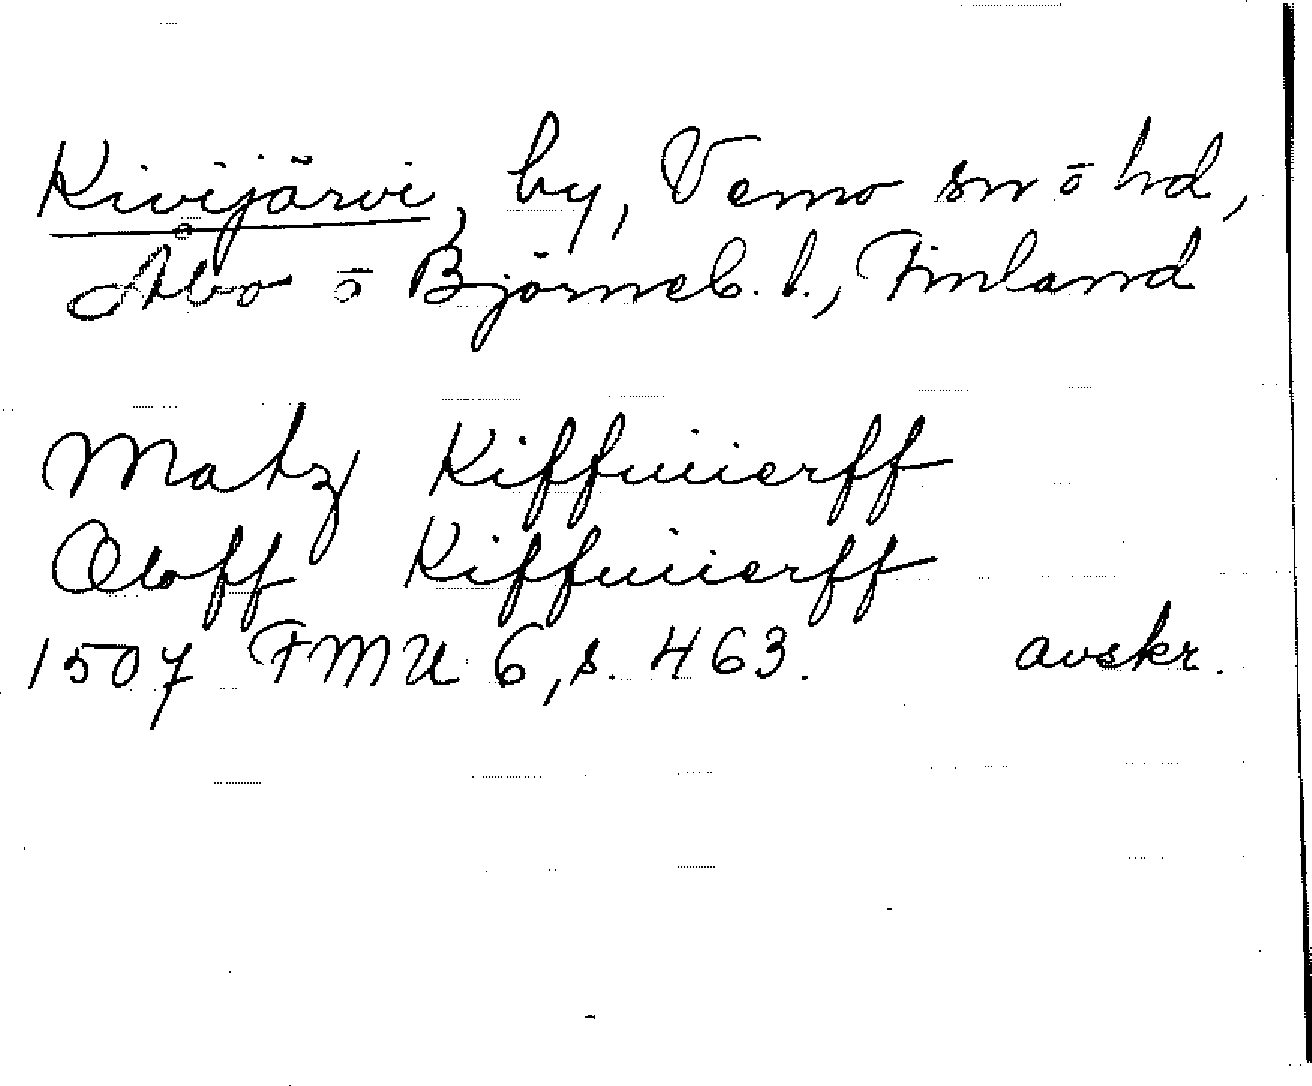 Kivijärvi, by, Vemo sn o hd,
Åbo o Björneb. l., Finland
Matz Kiffuiierff
Oloff Kiffuiierff
1507 FMU 6, s. 463. avskr.